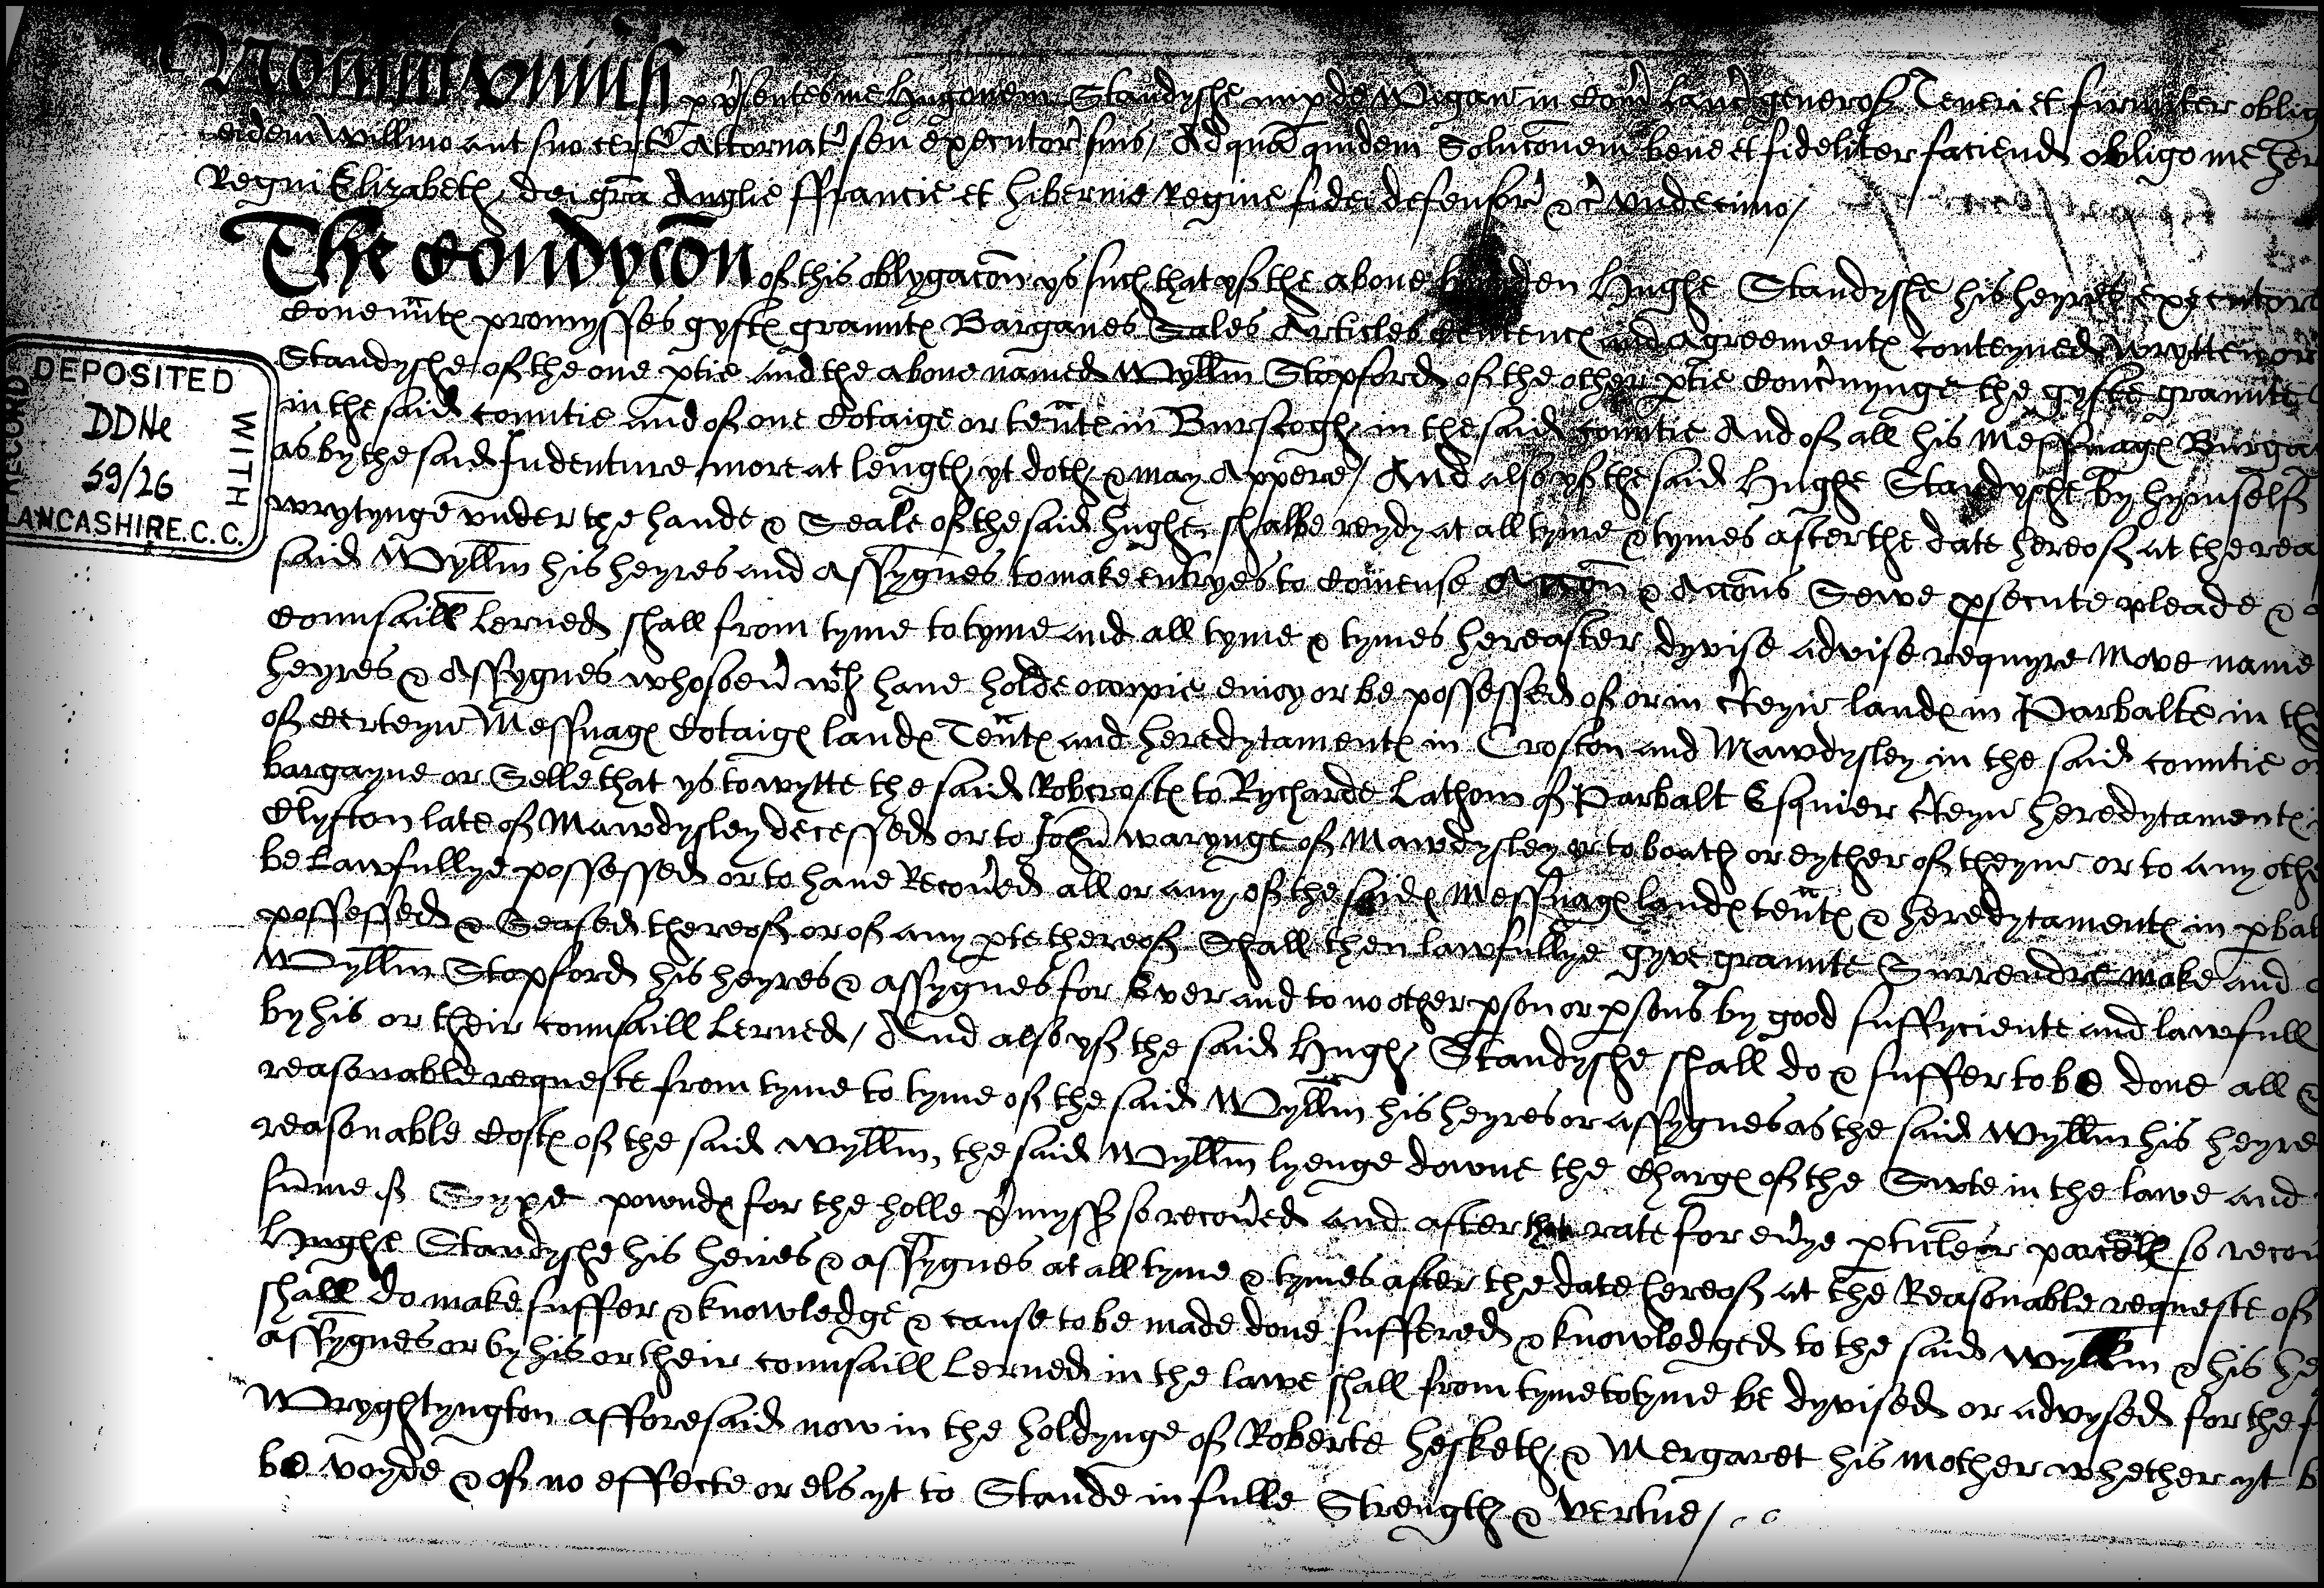 Nov̄int univ̄si p p̄sentes me Hugonem Standyshe nup de Wigan in Com̄ Lanc̄ generos̄ Teneri et firmiter oblig
eidem Willm̄o aut suo certo Attornat̄ seu executor̄ suis / Ad quā quidem Soluc̄onem bene et fideliter faciend obligo me her
Regni Elizabeth dei gr̄a Anglie ffrancie et Hibernie Regine fidei defensor̄ &c̄ undecimo /
The Condyc̄on of this oblygac̄on ys such that yf the above bounden Hughe Standyshe his heyres executors
Coven̄ntes promysses gyftes grauntes Barganes Sales Articles Sentences and agreementes conteyned wrytten or
Standyshe of the one ptie and the above named Wyllm̄ Stopford of the other ptie Conc̄nynge the gyfte graunte
in the said countie and of one Cotaige or ten̄te in Burscogh in the said countie And of all his Messuages Burga
as by the said Indenture more at length yt doth & may Appere / And also yf the said Hughe Standyshe by hymself
wrytynge under the hande & Seale of the said Hughe shalbe reydy at all tyme & tymes after the date hereof at the rea
said Wyllm̄ his heyres and Assygnes to make entryes to Comense Acc̄on & Acc̄ons Sewe psecute pleade &
Counsaill Lerned shall from tyme to tyme and all tyme & tymes hereafter dyvise advise requyre Move name
heyres & Assygnes whosoev̄ wch have holde occupie enioy or be possessed of or in c̄teyn landes in Parbalte in th
of Certeyn Messuages Cotaiges landes Ten̄tes and heredytamentes in Croston and Mawdysley in the said countie o
bargayne or Selle that ys to wytte the said Robcroftes to Rycharde Lathom of Parbalt Esquier c̄teyn heredytamentes
Clyfton late of Mawdysley decessed or to John̄ Warynge of Mawdysley or to boath or eyther of theym or to any othe
be Lawfullye possessed or to have Recov̄ed all or any of the saides Messuages landes ten̄tes & heredytamentes in pbal
possessed & Seased thereof or of any pte thereof Shall then lawfullye gyve graunte Surrendre make and
Wyllm̄ Stopford his heyres & assygnes for Ever and to no other pson or psons by good suffyciente and lawfull
by his or their counsaill Lerned / And also yf the said Hughe Standyshe shall do & suffer to be done all &
reasonable requeste from tyme to tyme of the said Wyllm̄ his heyres or assygnes as the said Wyllm̄ his heyre
reasonable Costes of the said Wyllm̄, the said Wyllm̄ lyenge downe the Charges of the Suyte in the lawe and
sum̄e of Syxe powndes for the holle p̄mysses so recov̄ed and after that rate for ev̄ye pticuler parcell so recov
Hughe Standyshe his heires & assygnes at all tyme & tymes after the date hereof at the Reasonable requeste of
shall do make suffer & knowledge & cause to be made done suffered & knowledged to the said Wyllm̄ & his he
assygnes or by his or their counsaill Lerned in the lawe shall from tyme to tyme be dyvised or advysed for the
Wryghtyngton afforesaid now in the holdynge of Roberte Hesketh & Mergaret his mother whether yt b
be voyde & of no effecte or els yt to Stande in fulle Strength & vertue /
DEPOSITED
WITH
RECORD
DDHe
59/26
LANCASHIRE. C. C.